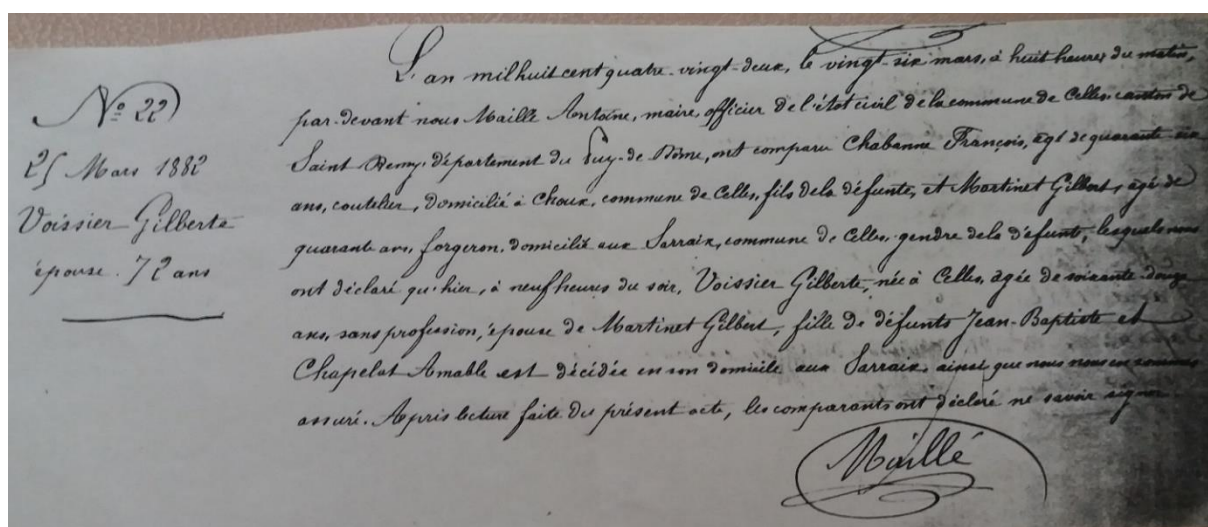 N° 22
25 Mars 1882
Voissier Gilberte
épouse. 72 ans
L'an mil huit cent quatre-vingt-deux, le vingt-six mars, à huit heures du matin,
par-devant nous Maillé Antoine, maire, officier de l'état civil de la commune de Celles, canton de
Saint Remy, département du Puy-de-Dôme, ont comparu Chabanne François, âgé de quarante six
ans, coutelier, domicilié à Choux, commune de Celles, fils de la défunte, et Martinet Gilbert, âgé de
quarante ans, forgeron, domicilié aux Sarraix, commune de Celles, gendre de la défunte, lesquels nous
ont déclaré qu'hier, à neuf heures du soir, Voissier Gilberte, née à Celles, âgée de soixante-douze
ans, sans profession, épouse de Martinet Gilbert, fille de défunts Jean-Baptiste et
Chapelat Amable est décédée en son domicile aux Sarraix, ainsi que nous nous en sommes
assuré. Après lecture faite du présent acte, les comparants ont déclaré ne savoir signer.
Maillé